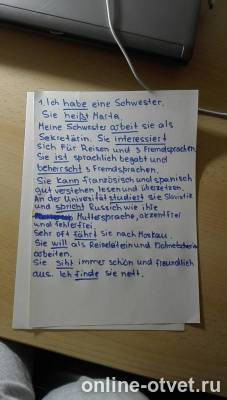 1. Ich habe eine Schwester.
Sie heißt Marta.
Meine Schwester arbeit sie als
Sekretärin. Sie interessiert
sich für Reisen und 3 Fremdsprachen.
Sie ist sprachlich begabt und
beherrscht 3 Fremdsprachen.
Sie kann französisch und spanisch
gut verstehen, lesen und übersetzen.
An der Universität studiert sie Slavistik
und spricht Russich wie ihre
Muttersprache, akzentfrei
und fehlerfrei.
Sehr oft fährt sie nach Moskau.
Sie will als Reiseleiterin und Dolmetscherin
arbeiten.
Sie siht immer schön und freundlich
aus. Ich finde sie nett.
online-otvet.ru